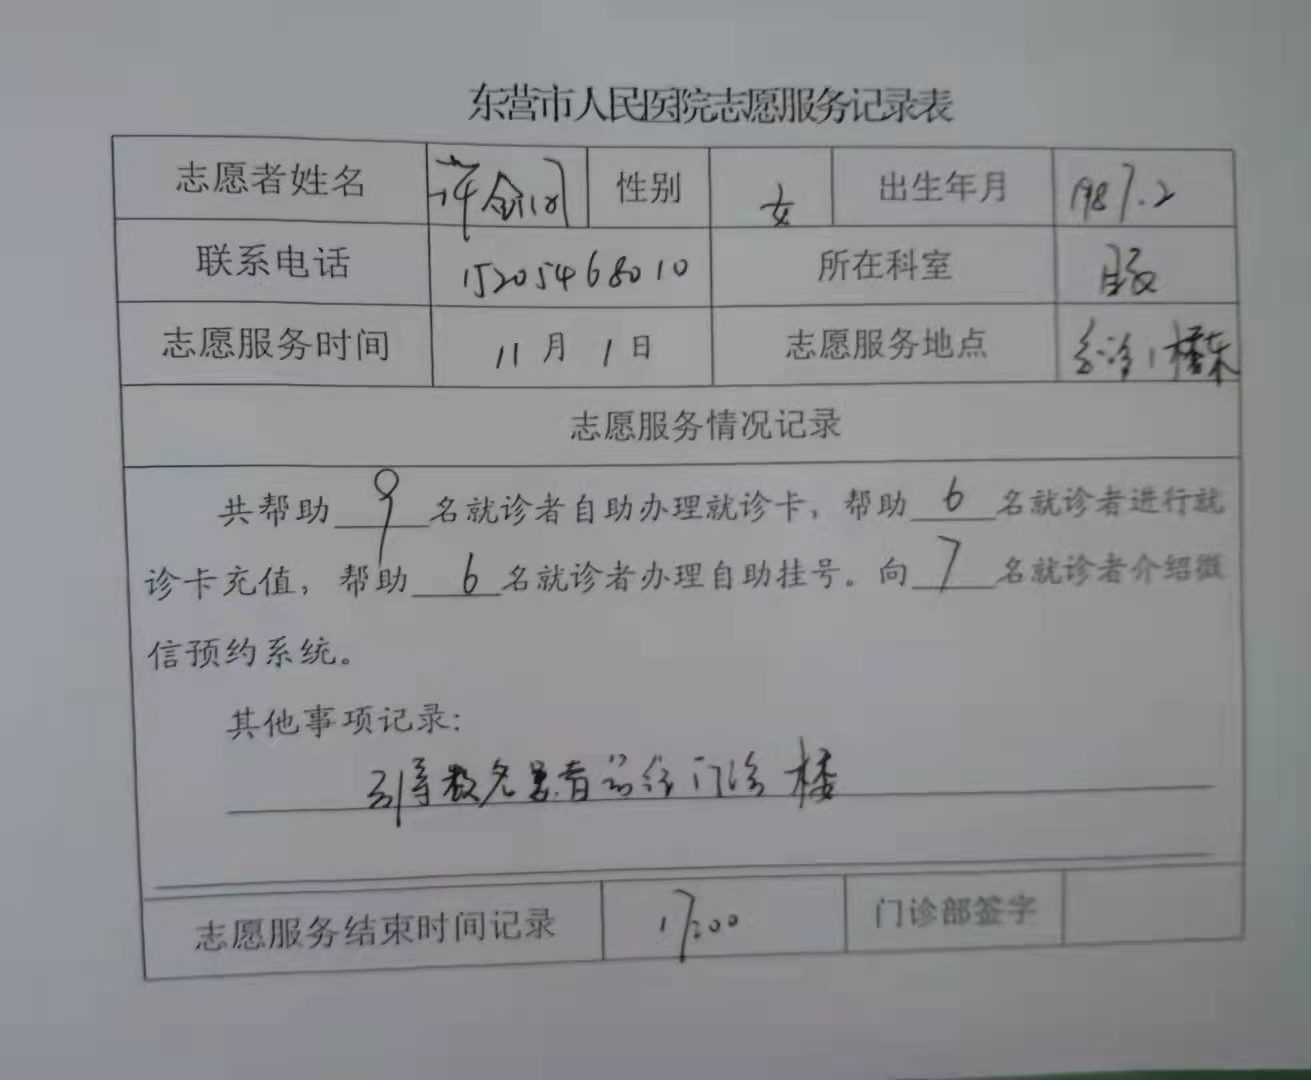 东营市人民医院志愿服务记录表
志愿者姓名 许金 性别 女 出生年月 1987.2
联系电话 15205468010 所在科室
志愿服务时间 11月1日 志愿服务地点 1楼东
志愿服务情况记录
共帮助9名就诊者自助办理就诊卡，帮助6名就诊者进行就
诊卡充值，帮助6名就诊者办理自助挂号。向7名就诊者介绍微
信预约系统。
其他事项记录：
引导数名患者前往门诊楼
志愿服务结束时间记录 17:00 门诊部签字